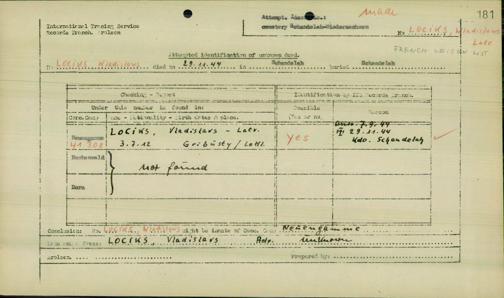 181
International Tracing Service
Records Branch. Arolsen
Attempt. Ident. No.:
cemetery Schandelah-Niedersachsen
male
No LOCIKS, Wladislaws
Latv.
FRENCH LETTER LIST
Attempted identification of unknown dead.
No LOCIKS, Wladislaws died on 29.11.44 in Schandelah buried Schandelah
Checking - Report
Identification by ITS Records Branch.
Under this number is found in:
Possible
Yes or no.
Reason
Conc. Camp
Name - Nationality - Birth date & place.
Neuengamme
41 308
LOCIKS, Vladislavs - Latv.
3.7.12
yes
7.9.44
29.11.44
Kdo. Schandelah
Buchenwald
not found
Dora
Conclusion: No. LOCIKS, Wladislaws might be inmate of Conc. Camp Neuengamme
LOCIKS, Vladislavs Adr. unknown
Arolsen
Prepared by: